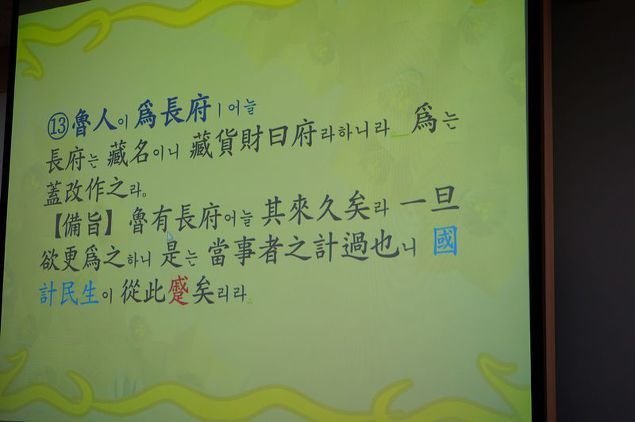 ⑬魯人이 爲長府ㅣ어늘
長府는 藏名이니 藏貨財曰府라하니라 爲는
蓋改作之라。
【備旨】 魯有長府어늘 其來久矣라 一旦
欲更爲之하니 是는 當事者之計過也니 國
計民生이 從此蹙矣리라